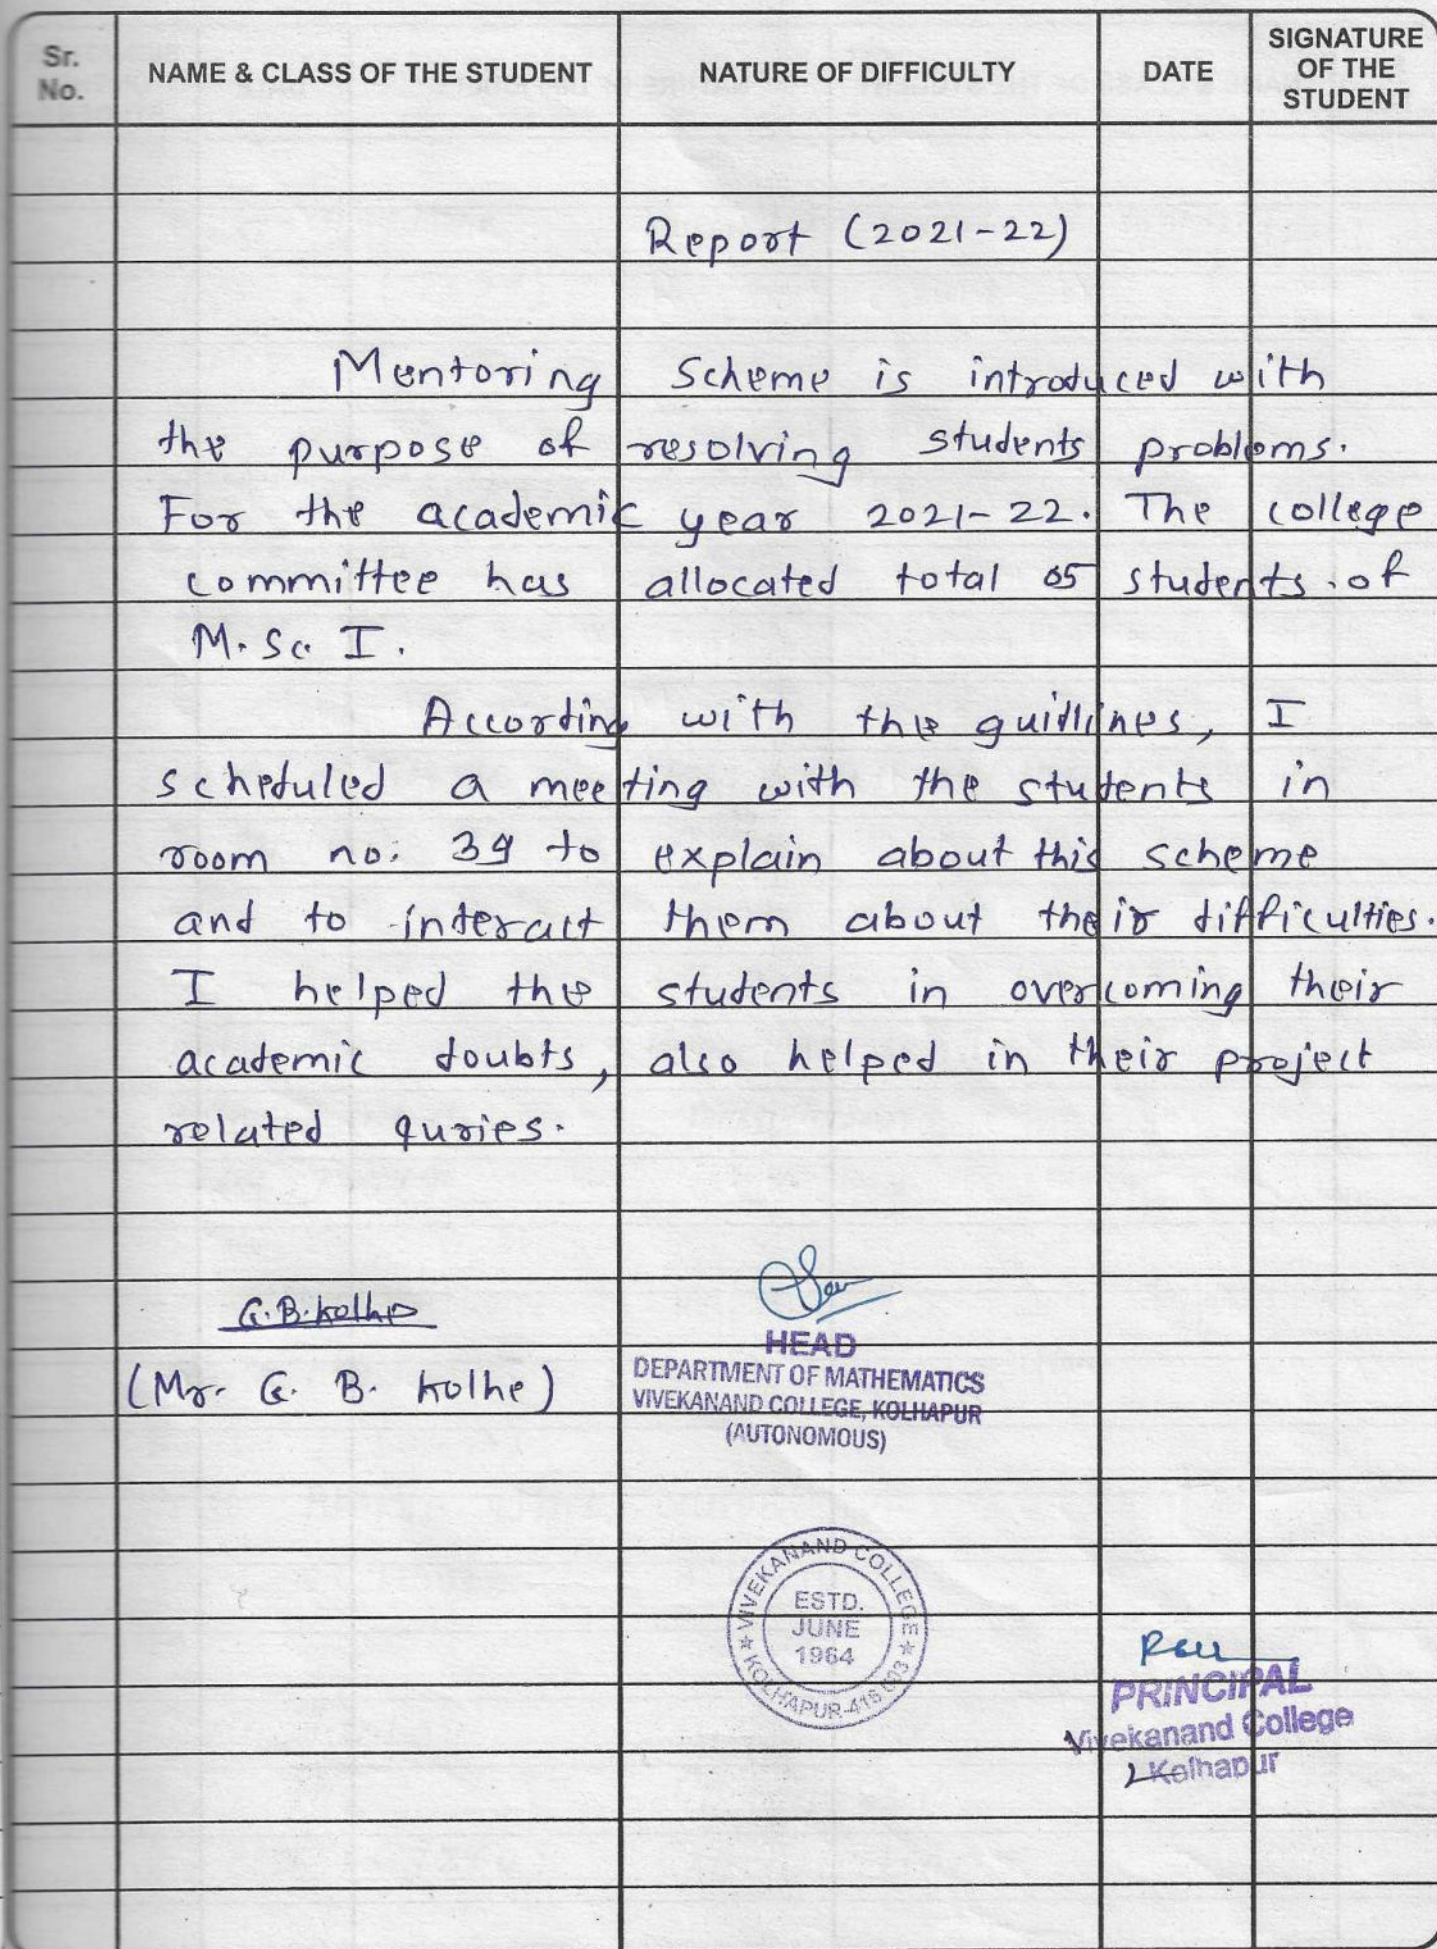 Sr. No.
NAME & CLASS OF THE STUDENT
NATURE OF DIFFICULTY
DATE
SIGNATURE OF THE STUDENT
Report (2021-22)
Mentoring Scheme is introduced with
the purpose of resolving students problems.
For the academic year 2021-22. The college
committee has allocated total 05 students of
M.Sc. I.
According with the guidlines, I
scheduled a meeting with the students in
room no. 39 to explain about this scheme
and to interact them about their difficulties.
I helped the students in overcoming their
academic doubts, also helped in their project
related quries.
G.B.Kolhe
(Mr. G. B. Kolhe)
HEAD
DEPARTMENT OF MATHEMATICS
VIVEKANAND COLLEGE, KOLHAPUR
(AUTONOMOUS)
VIVEKANAND COLLEGE
KOLHAPUR-416 003
ESTD.
JUNE
1964
PRINCIPAL
Vivekanand College
Kolhapur